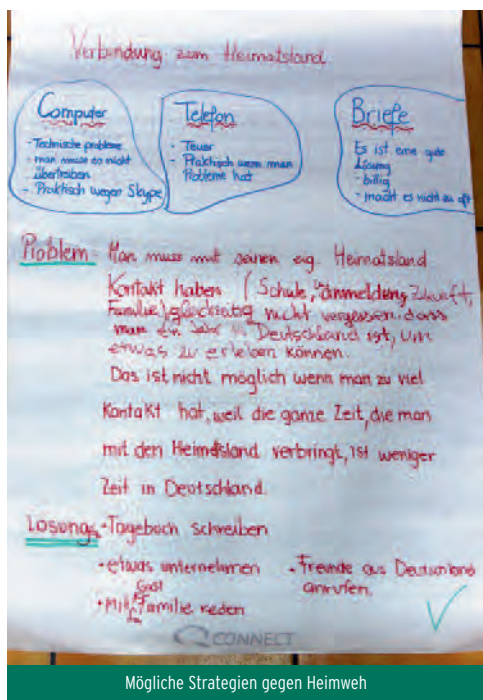 Verbindung zum Heimatsland
Computer
- Technische probleme
- man muss es nicht
übertreiben
- Praktisch wegen Skype
Telefon
- Teuer
- Praktisch wenn man
Probleme hat
Briefe
Es ist eine gute
Lösung
- billig
- macht es nicht zu oft
Problem - Man muss mit seinen eig. Heimatsland
Kontakt haben (Schule, anmelden, Zukunft,
Familie), gleichzeitig nicht vergessen, dass
man ein Jahr in Deutschland ist, um
etwas zu erleben können.
Das ist nicht möglich wenn man zu viel
Kontakt hat, weil die ganze Zeit, die man
mit den Heimatsland verbringt, ist weniger
Zeit in Deutschland.
Lösung - Tagebuch schreiben
- etwas unternehmen
- Freunde aus Deutschland
anrufen.
- Mit Gast Familie reden
Q CONNECT
Mögliche Strategien gegen Heimweh